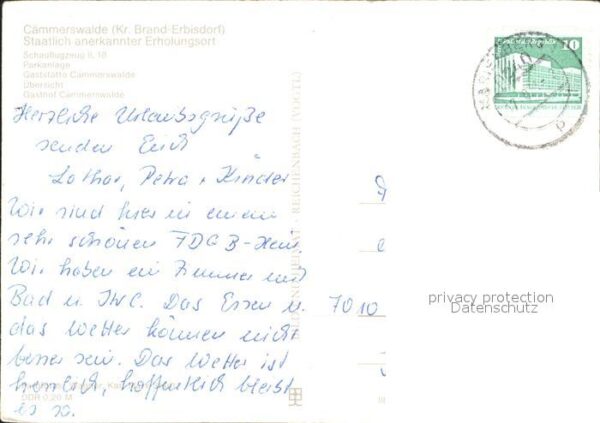 Cämmerswalde (Kr. Brand-Erbisdorf)
Staatlich anerkannter Erholungsort
Schauflugzeug IL 18
Parkanlage
Gaststätte Cämmerswalde
Übersicht
Gasthof Cämmerswalde
Herzliche Urlaubsgrüße
senden Euch
Lothar, Petra + Kinder
Wir sind hier in einem
sehr schönen FDGB-Heim.
Wir haben ein Zimmer mit
Bad u. IWC. Das Essen u.
das Wetter können nicht
besser sein. Das Wetter ist
herrlich, hoffentlich bleibt
es so.
DDR 0,20 M
REICHENBACH (VOGTL)
10
7010
privacy protection
Datenschutz